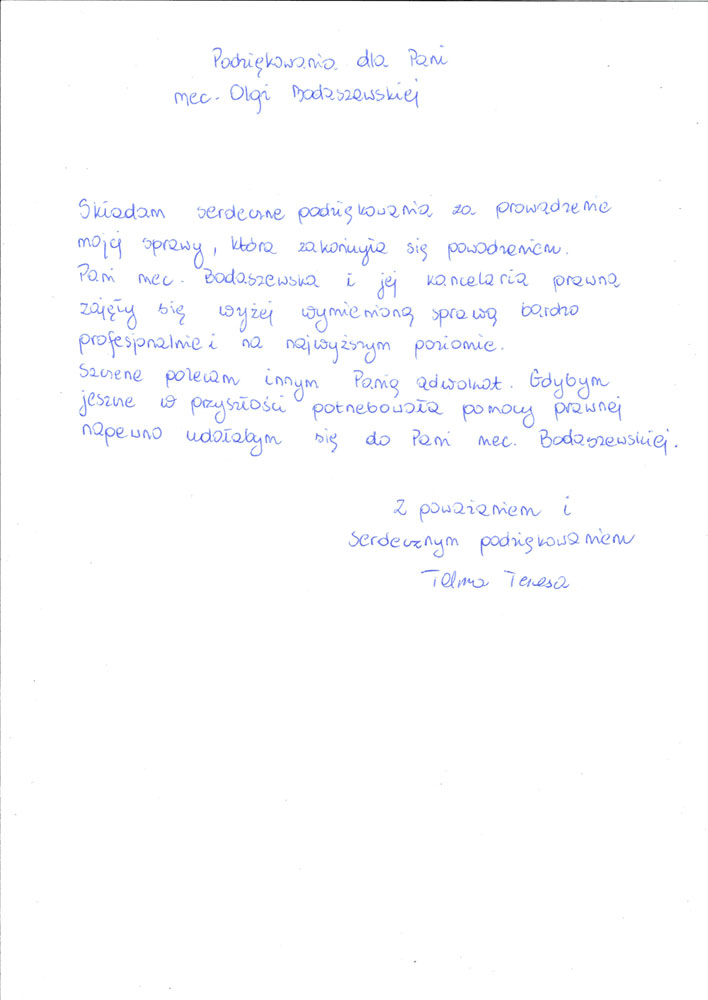 Podziękowania dla Pani
mec. Olgi Bodaszewskiej
Składam serdeczne podziękowania za prowadzenie
mojej sprawy, która zakończyła się powodzeniem.
Pani mec. Bodaszewska i jej kancelaria prawna
zajęły się wyżej wymienioną sprawą bardzo
profesjonalnie i na najwyższym poziomie.
Szczerze polecam innym Panią adwokat. Gdybym
jeszcze w przyszłości potrzebowała pomocy prawnej
napewno udałabym się do Pani mec. Bodaszewskiej.
Z poważaniem i
serdecznym podziękowaniem
Teresa